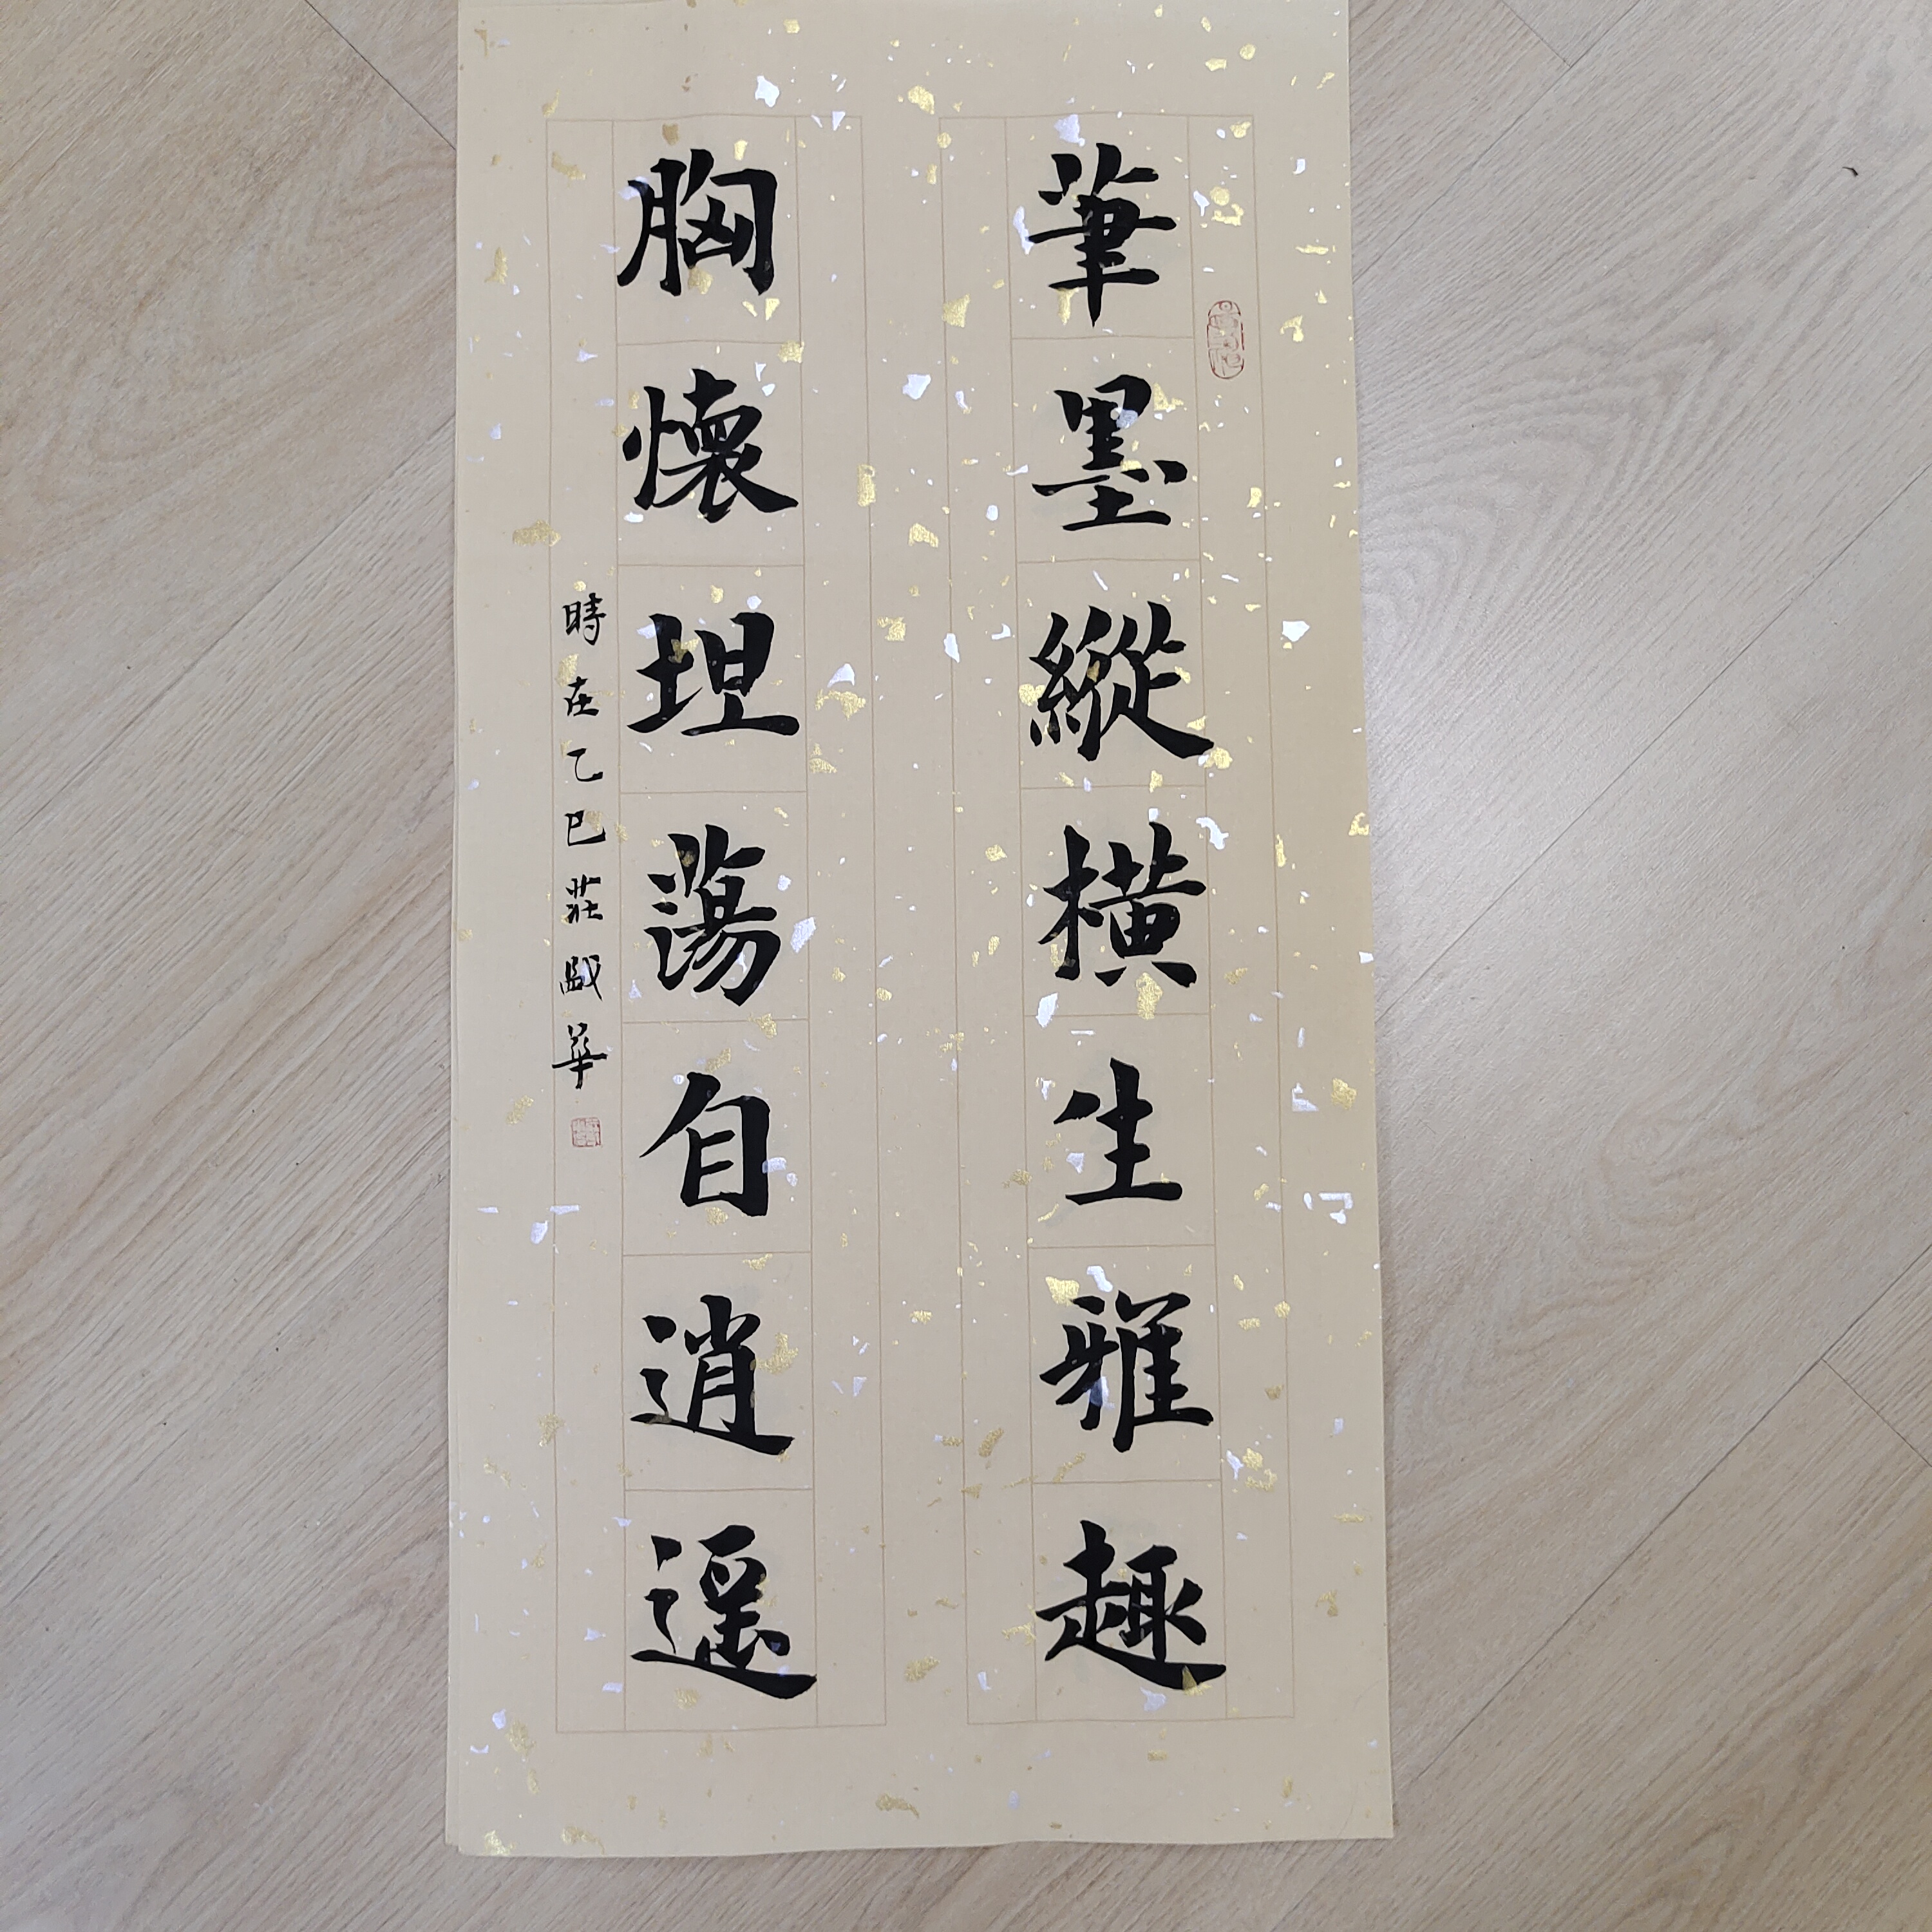 筆墨縱橫生雅趣
胸懷坦蕩自逍遥
時在乙巳莊國華